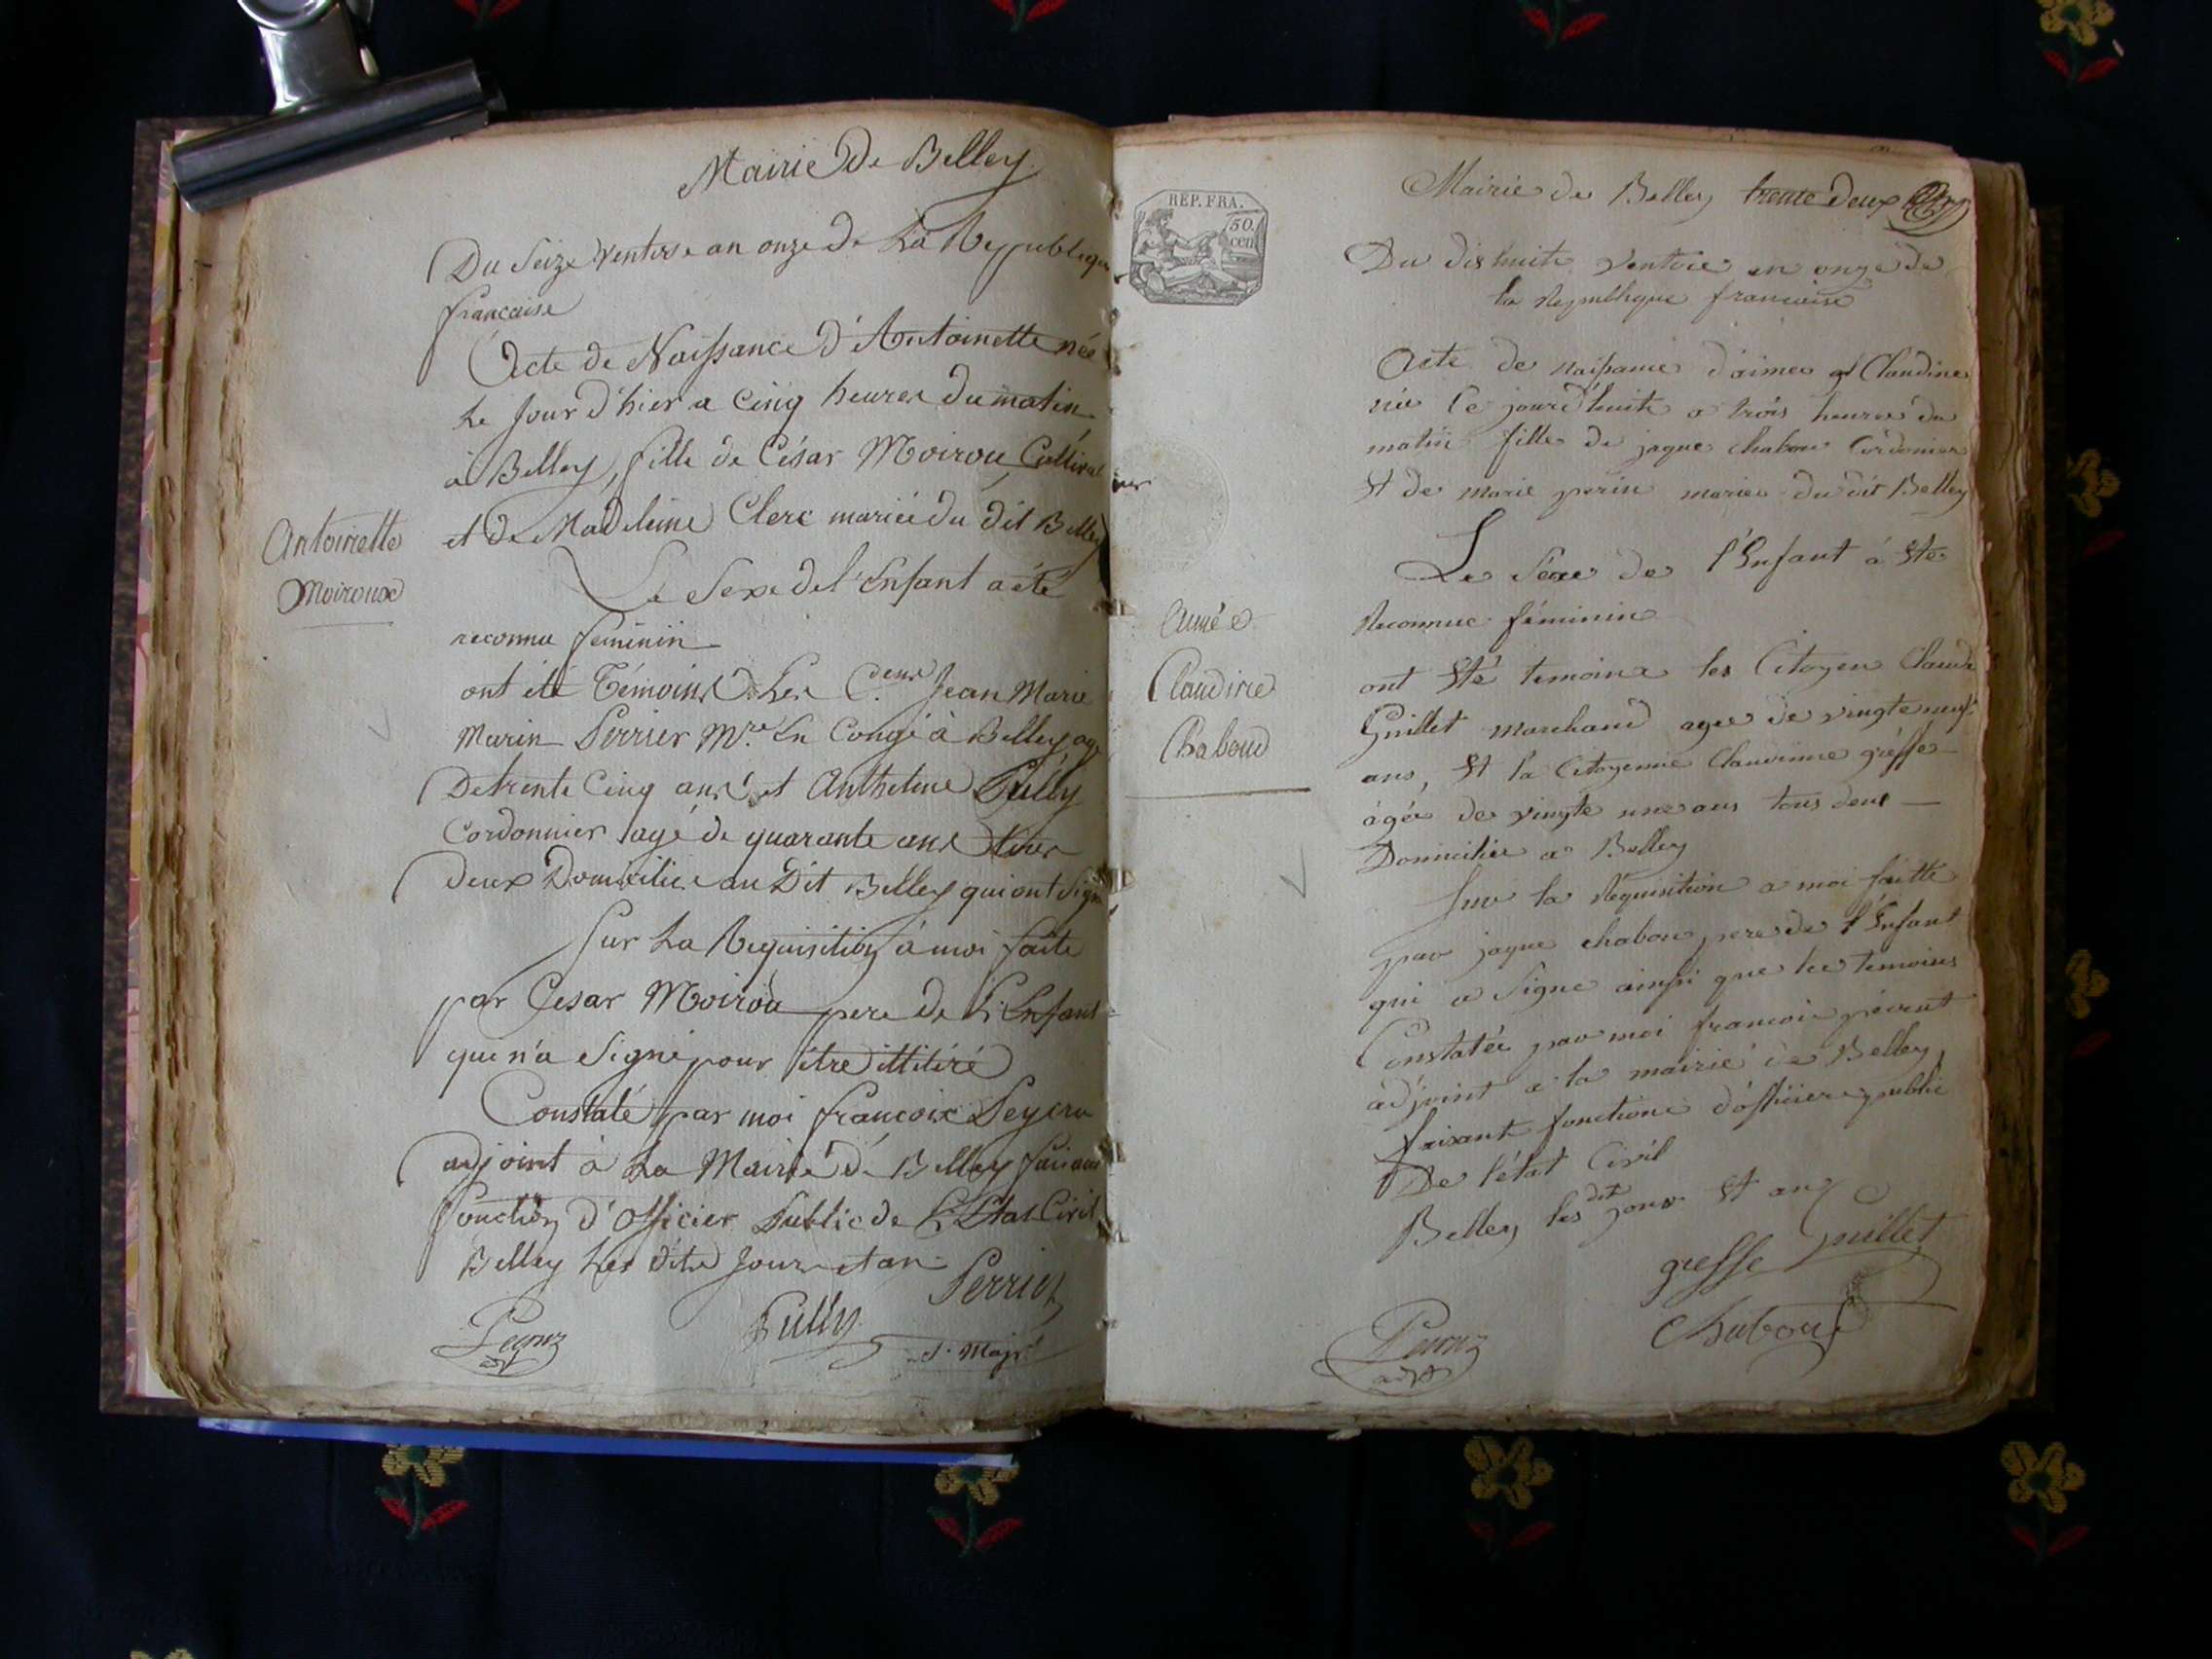 Mairie De Belley
Du Seize Ventose an onze de La Republique
francaise
Acte de Naissance d'Antoinette née
Le Jour d'hier a Cinq heures du matin
à Belley, fille de César Moirou Cultivateur
et de Madeleine Clerc mariée du dit Belley
Antoinette
Moiroux
Le Sexe de l'Enfant a été
reconnu feminin
ont été Témoins Les C.deux Jean Marie
Marin Perrier M.re En Congé à Belley agé
De trente Cinq ans et Anthelme Pully
Cordonnier agé de quarante ans tous
deux Domicilié au Dit Belley qui ont Signé
Sur La Requisition à moi faite
par Cesar Moirou pere de L'Enfant
qui n'a Signé pour être illitéré
Constaté par moi francois Peycru
adjoint à La Mairie de Belley faisant
fonction d'Officier Public de L'Etat Civil
Belley Les dits Jour et an
Perrier
Pully
S. Majr
REP. FRA.
50.
cen
Mairie de Belley trente deux
Du dishuite Ventose an onze de
la Republique francaise
Acte de naissance d'aimee et Claudine
née le jourd'huite a trois heures du
matin fille de jaque chabou Cordonier
Et de marie perin mariee du dit Belley
Le Séxe de l'Enfant à Ete
Reconnue féminin
Aimée
Claudine
Chaboud
ont Eté temoins les Citoyen Claude
Guillet marchand agee de vingte neuf
ans, Et la Citoyenne Claudinne gréffe
àgée de vingte une ans tous deux
Domiciliée a Belley
Sur la Réquisition a moi faitte
par jaque chabou pere de l'Enfant
qui a Signe ainssi que les temoins
Constatée par moi francois péicrut
adjoint a la mairie de Belley
faisant fonctions d'officier public
De l'état Civil
Belley les dit jour Et an
Guillet
greffe
Chaboud